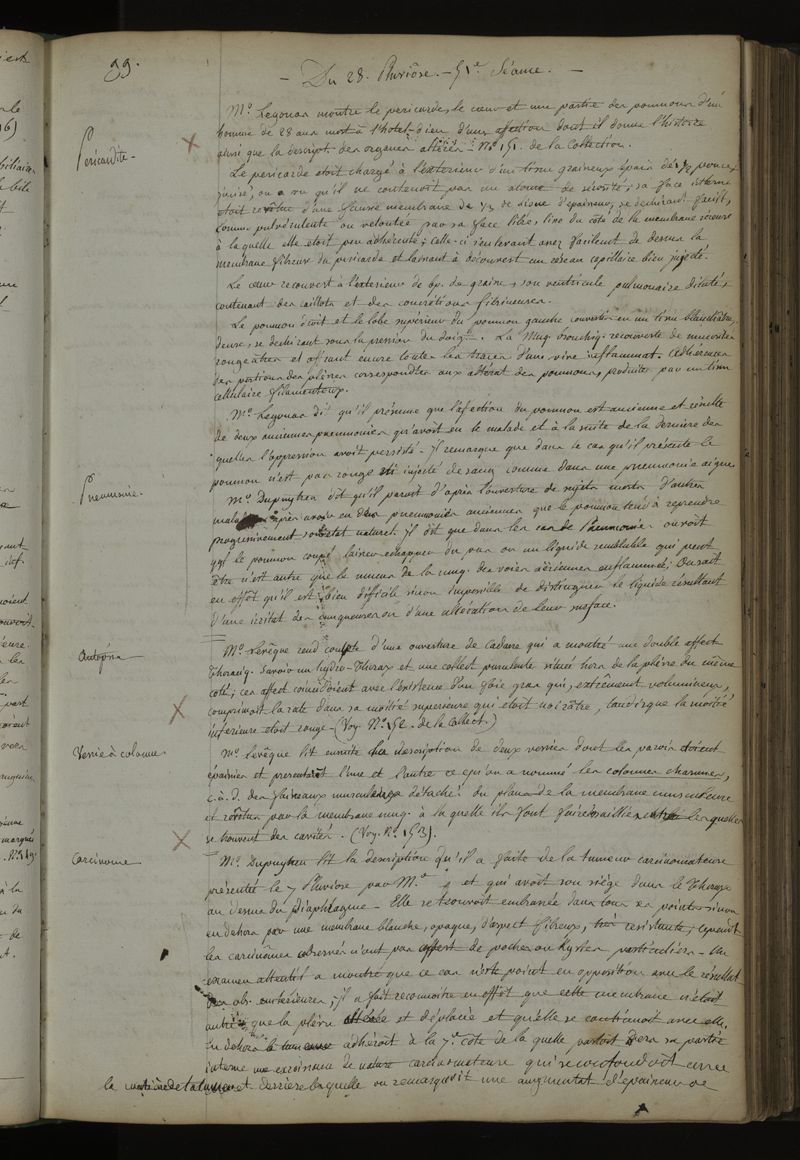 99.
— Du 28. Pluviôse. — 51e. Séance. —
Pericardite.
Mr. Leyonan montre le pericarde, le cœur et une partie des poumons d'un
homme de 28 ans mort à l'hotel-dieu d'une affection dont il donne l'histoire
ainsi que la descript. des organes altérés. No. 151. de la Collection.
Le pericarde etoit chargé à l'exterieur d'un tissu graineux épais de 1/2 pouce,
incisé, on a vu qu'il ne contenoit pas un atome de sérosité; sa face interne
etoit revêtue d'une fausse membrane de 1/2 de ligne d'épaisseur, se déchirant facilt,
comme pulvérulente ou veloutée par sa face libre, lisse du côté de la membrane séreuse
à la quelle elle etoit peu adhérente; celle-ci s'enlevant assez facilement de dessus la
membrane fibreuse du pericarde et laissant à découvert un réseau capillaire bien injecté.
Le cœur recouvert à l'exterieur de bp. de graisse, son ventricule pulmonaire dilaté,
contenant des caillots et des concrétions fibrineuses.
Le poumon droit et le lobe supérieur du poumon gauche convertis en un tissu blanchâtre,
dense, se dechirant sous la pression du doigt. La Muq. bronchiq. recouverte de mucosités
rougeâtres et offrant encore toutes les traces d'une vive inflammat. Adhérences
des portions des plèvres correspondtes aux altérat. des poumons, produites par un tissu
cellulaire filamenteux.
Mr. Leyonan dit qu'il présume que l'affection du poumon est ancienne et résulte
de deux anciennes pneumonies qu'avoit eu le malade et à la suite de la dernière des
quelles l'oppression avoit persisté. Il remarque que dans le cas qu'il présente le
poumon n'est pas rouge ni injecté de sang comme dans une pneumonie aigue.
Pneumonie.
Mr. Dupuytren dit qu'il paroit d'après l'ouverture de sujets morts d'autres
malad. après avoir eu des pneumonies anciennes que le poumon tend à reprendre
progressivement son état naturel. Il dit que dans les cas de Pneumonies on voit
le poumon coupé laisser échapper du pus ou un liquide semblable qui peut
être n'est autre que le mucus de la muq. des voies aériennes enflammée; On sait
en effet qu'il est bien difficile sinon impossible de distinguer le liquide résultant
d'une irritat. des muqueuses ou d'une ulcération de leur surface.
Autopsie
Mr. Levêque rend compte d'une ouverture de cadavre qui a montré une double affect.
thoraciq. savoir un hydro-thorax et une collect. purulente située hors de la plèvre du même
coté; ces affect. coincidoient avec l'existence d'un foie gras qui, extrêmement volumineux,
comprimoit la rate dans sa moitié superieure qui etoit noirâtre, tandis que la moitié
inférieure etoit rouge. (Voy. No. 152. de la Collect.)
Vessie à colonnes.
Mr. Levêque lit ensuite la description de deux vessies dont les parois étoient
épaissies et presentaient l'une et l'autre ce qu'on a nommé les colonnes charnues,
c.à.d. des faisceaux musculeux détachés du plan de la membrane musculeuse
et revêtus par la membrane muq. à la quelle ils font faire saillie, entre les quelles
se trouvent des cavités. (Voy. No. 153).
Carcinome
Mr. Dupuytren lit la description qu'il a faite de la tumeur carcinomateuse
présentée le 7 Pluviose par Mr. et qui avoit son siège dans le thorax
au dessus du diaphragme. Elle se trouvoit embrassée dans tous ses points sinon
en dehors par une membrane blanche, opaque, d'aspect fibreux, très resistante; cependt
les carcinômes observés n'ont pas offert de poches ou kystes particuliers. Un
examen attentif a montré que ce cas n'est point en opposition avec le résultat
des obs. antérieures; il a fait reconnoitre en effet que cette membrane n'étoit
autre que la plèvre altérée et déplacée et qu'elle se continuoit avec elle.
En dehors la tumeur adhéroit à la 7e. côte de la quelle partoit dans sa partie
interne une excroissance de nature carcinomateuse qui se confondoit avec
la matière de la tumeur et derrière laquelle on remarquoit une augmentat. d'épaisseur de